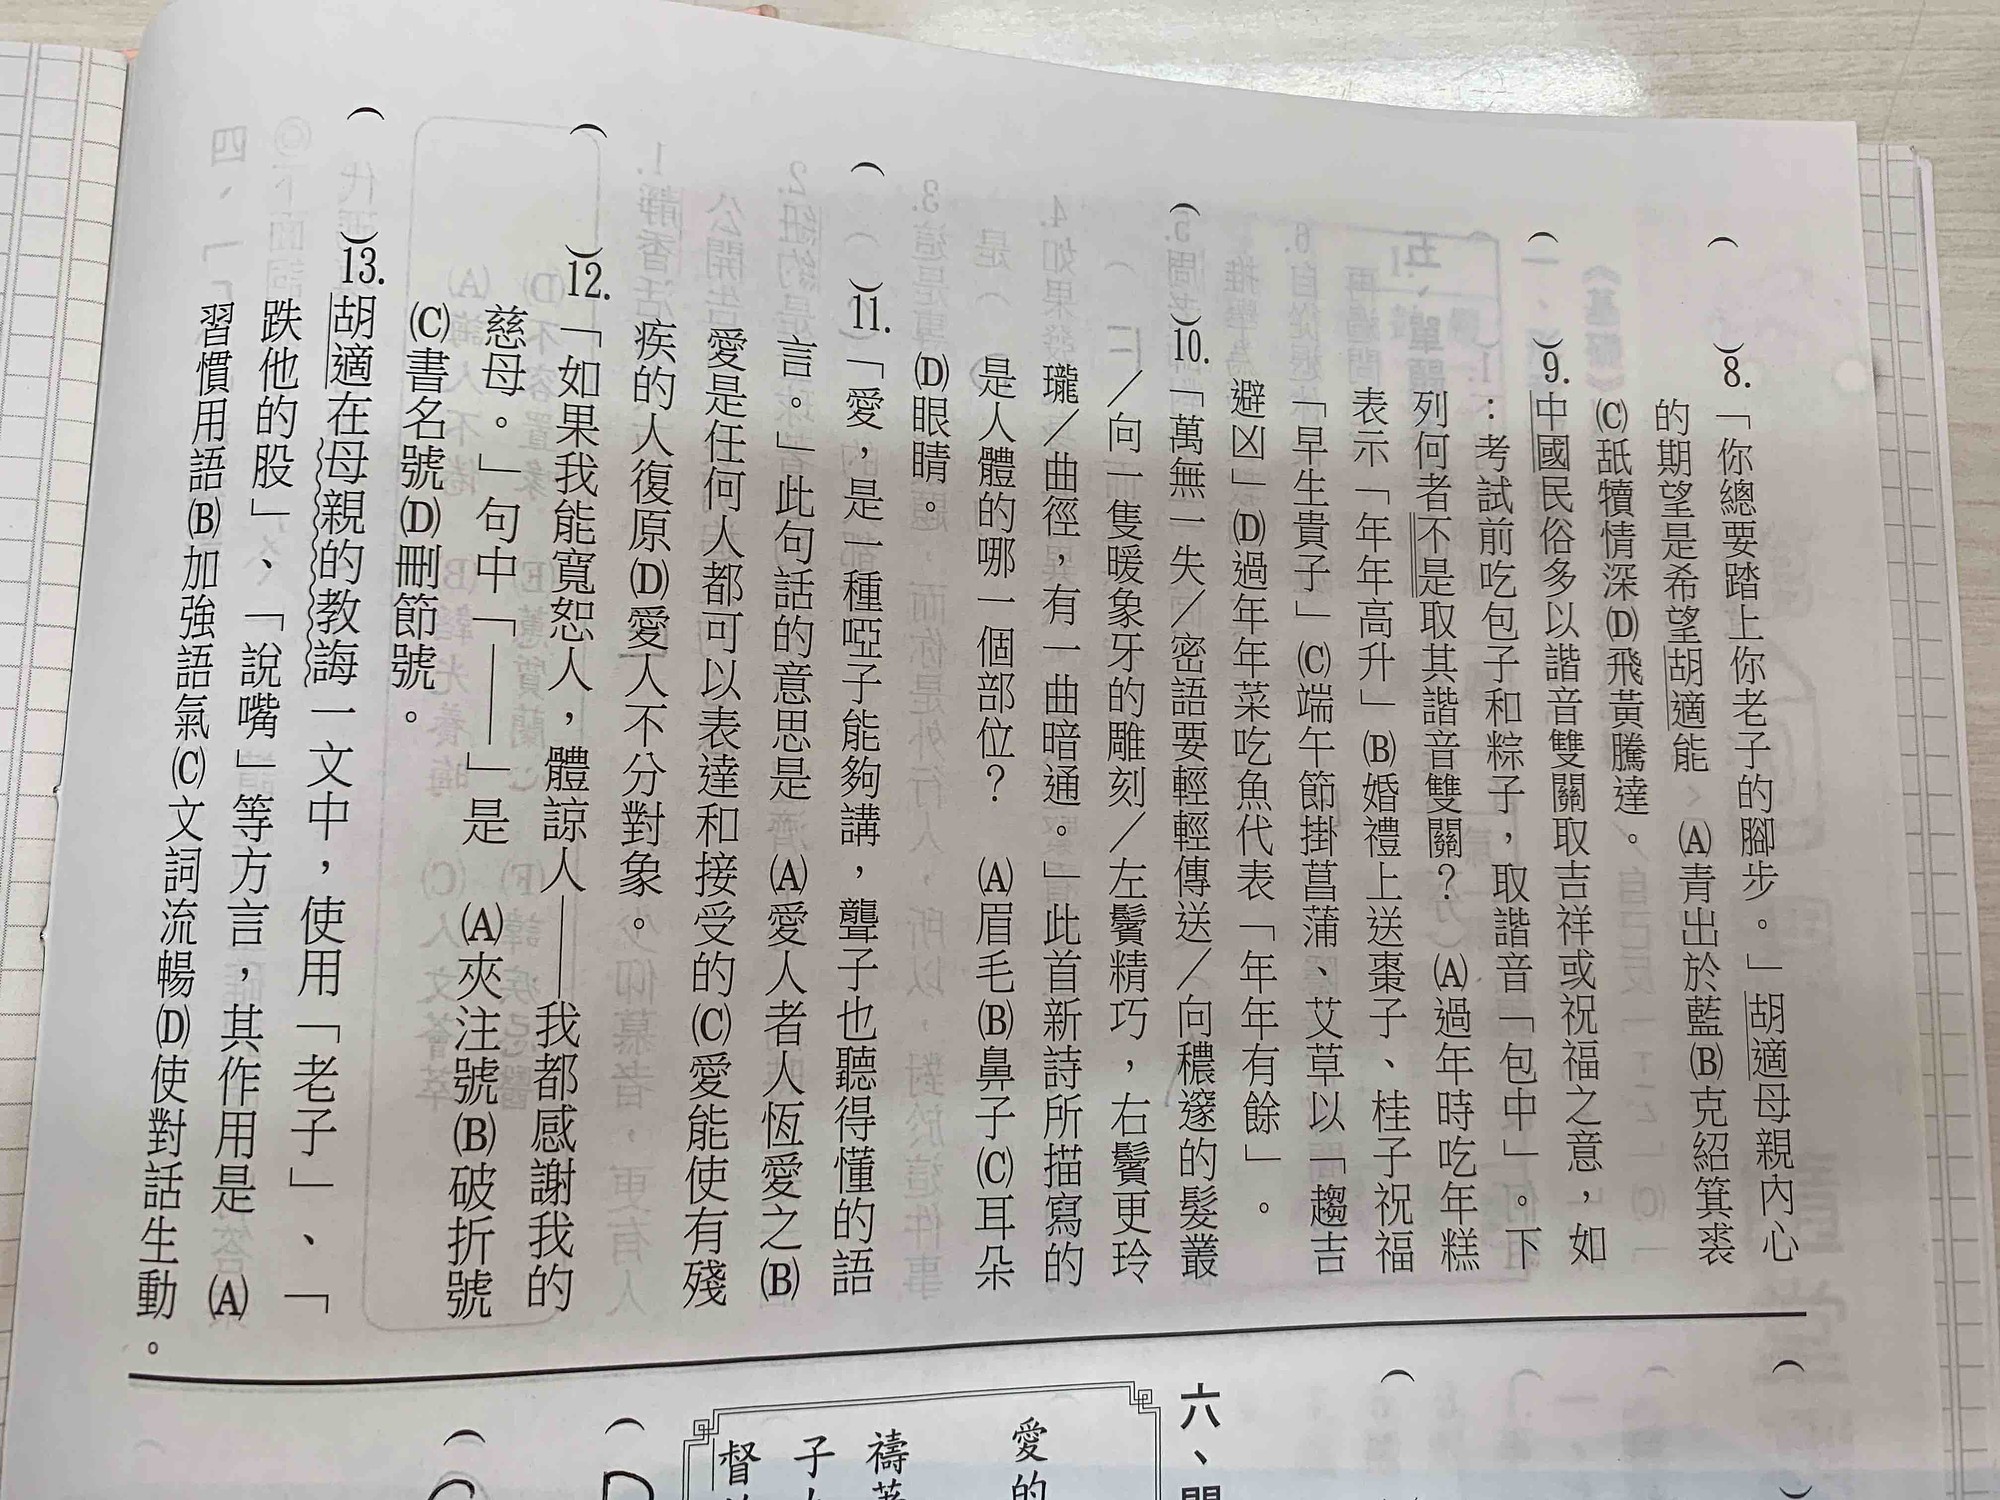 ( )8.「你總要踏上你老子的腳步。」胡適母親內心
的期望是希望胡適能 (A)青出於藍(B)克紹箕裘
(C)舐犢情深(D)飛黃騰達。
( )9.中國民俗多以諧音雙關取吉祥或祝福之意,如
:考試前吃包子和粽子,取諧音「包中」。下
列何者不是取其諧音雙關? (A)過年時吃年糕
表示「年年高升」(B)婚禮上送棗子、桂子祝福
「早生貴子」(C)端午節掛菖蒲、艾草以「趨吉
避凶」(D)過年年菜吃魚代表「年年有餘」。
( )10.「萬無一失/密語要輕輕傳送/向穠邃的髮叢
/向一隻暖象牙的雕刻/左鬢精巧,右鬢更玲
瓏/曲徑,有一曲暗通。」此首新詩所描寫的
是人體的哪一個部位? (A)眉毛(B)鼻子(C)耳朵
(D)眼睛。
( )11.「愛,是一種啞子能夠講,聾子也聽得懂的語
言。」此句話的意思是 (A)愛人者人恆愛之(B)
愛是任何人都可以表達和接受的(C)愛能使有殘
疾的人復原(D)愛人不分對象。
( )12.「如果我能寬恕人,體諒人——我都感謝我的
慈母。」句中「——」是 (A)夾注號(B)破折號
(C)書名號(D)刪節號。
( )13.胡適在母親的教誨一文中,使用「老子」、「
跌他的股」、「說嘴」等方言,其作用是 (A)
習慣用語(B)加強語氣(C)文詞流暢(D)使對話生動。
六、
愛的
禱
子
督